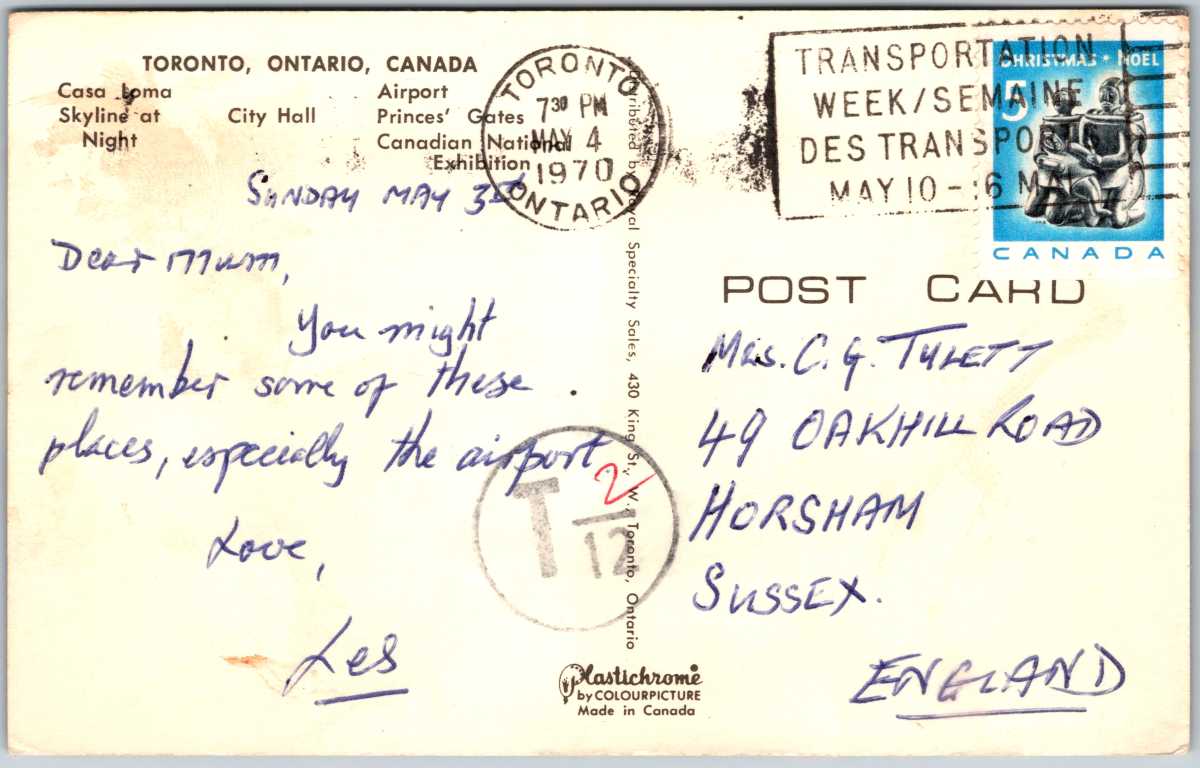 TORONTO, ONTARIO, CANADA
Casa Loma
Skyline at
Night
City Hall
Airport
Princes' Gates
Canadian National
Exhibition
TORONTO
7 30 PM
MAY 4
1970
ONTARIO
TRANSPORTATION
WEEK/SEMAINE
DES TRANSPORTS
MAY 10 - 16 MAI
CHRISTMAS • NOËL
5
CANADA
SUNDAY MAY 3rd
Dear Mum,
You might
remember some of these
places, especially the airport.
Love,
Les
T 2/12
Distributed by Royal Specialty Sales, 430 King St. W., Toronto, Ontario
POST CARD
MRS. C. G. TYLETT
49 OAKHILL ROAD
HORSHAM
SUSSEX.
ENGLAND
Plastichrome
by COLOURPICTURE
Made in Canada